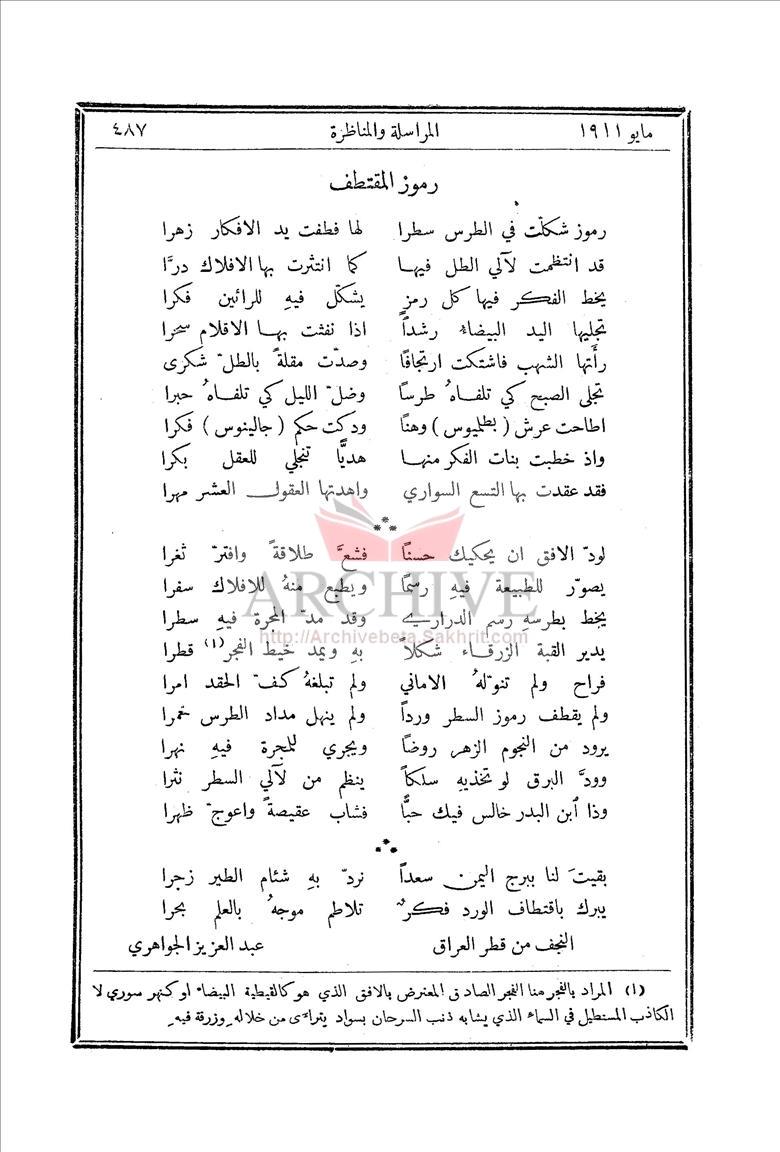 مايو ١٩١١ المراسلة والمناظرة ٤٨٧
رموز المقتطف
رموز شكلّت في الطرس سطرا لها قطفت يد الافكار زهرا
قد انتظمت لآلي الطل فيها كما انتثرت بها الافلاك درَّا
يخط الفكر فيها كل رمزٍ يشكّل فيهِ للرائين فكرا
تجليها اليد البيضاء رشداً اذا نفثت بها الاقلام سحرا
رأَتها الشهب فاشتكت ارتجافًا وصدّت مقلةً بالطلّ شكرى
تجلى الصبح كي تلقاهُ طرسًا وضلّ الليل كي تلقاهُ حبرا
اطاحت عرش (بطليوس) وهنًا ودكت حكم (جالينوس) فكرا
واذ خطبت بنات الفكر منها هديًّا تنجلي للعقل بكرا
فقد عقدت بها التسع السواري واهدتها العقول العشر مهرا
***
لودّ الافق ان يحكيك حسنًا فشعَّ طلاقةً وافترّ ثغرا
يصوّر للطبيعة فيهِ رسمًا ويطبع منهُ للافلاك سفرا
يخط بطرسهِ رسم الدراري وقد مدّ المجرة فيهِ سطرا
يدير القبة الزرقاء شكلاً بهِ ويمد خيط الفجر(١) قطرا
فراح ولم تنوّلهُ الاماني ولم تبلغهُ كفّ الحقد امرا
ولم يقطف رموز السطر ورداً ولم ينهل مداد الطرس خمرا
يرود من النجوم الزهر روضًا ويجري للمجرة فيهِ نهرا
وودَّ البرق لو تتخذيهِ سلكاً ينظم من لآلي السطر نثرا
وذا ابن البدر خالس فيك حبًّا فشاب عقيصةً واعوجّ ظهرا
***
بقيتَ لنا ببرج اليمن سعداً نردّ بهِ شئام الطير زجرا
يبرك باقتطاف الورد فكرٌ تلاطم موجهُ بالعلم بحرا
النجف من قطر العراق عبد العزيز الجواهري
(١) المراد بالفجر هنا الفجر الصادق المعترض بالافق الذي هو كالقبطية البيضاء او كنهر سوري لا
الكاذب المستطيل في السماء الذي يشابه ذنب السرحان بسواد يتراءى من خلاله وزرقة فيه
ARCHIVE
http://Archivebeta.Sakhrit.com